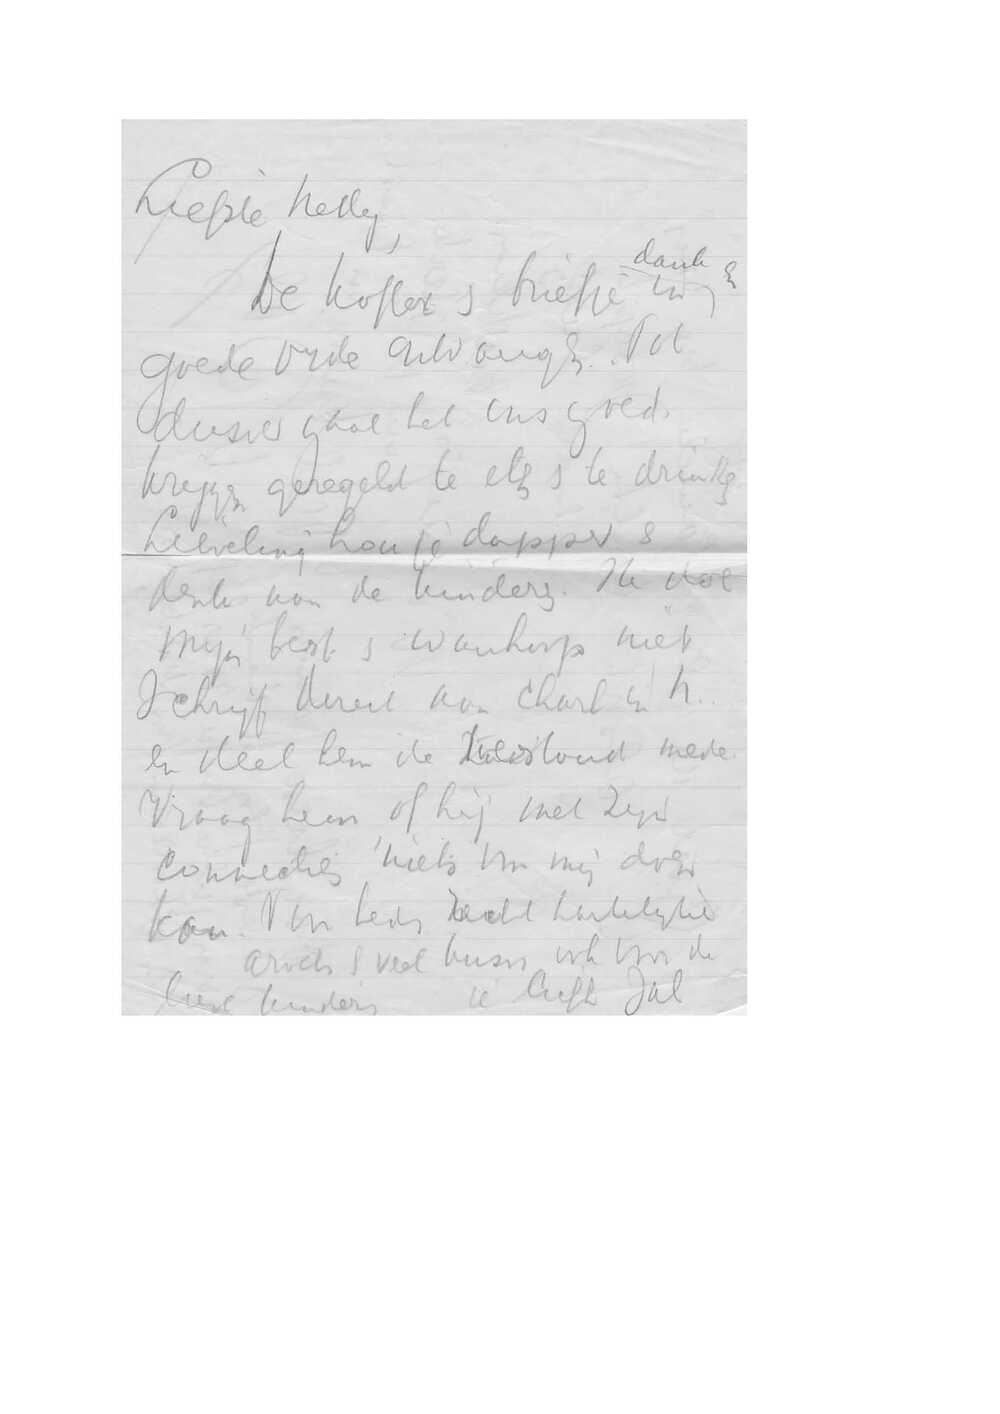 Liefste Nelly,
De koffer & briefje dank in &
goede orde ontvangen. Tot
dusver gaat het ons goed.
krijgen geregeld te eten & te drinken
Lieveling hou je dapper &
denk aan de kinders. Ik doe
mijn best & wanhoop niet
Schrijf direct aan Charl in N..
en deel hem de toestand mede.
Vraag hem of hij met zijn
connecties niets voor mij doen
kan. Voor heden hartelijke
veel kussen ook voor de
lieve kinders je liefh Jul